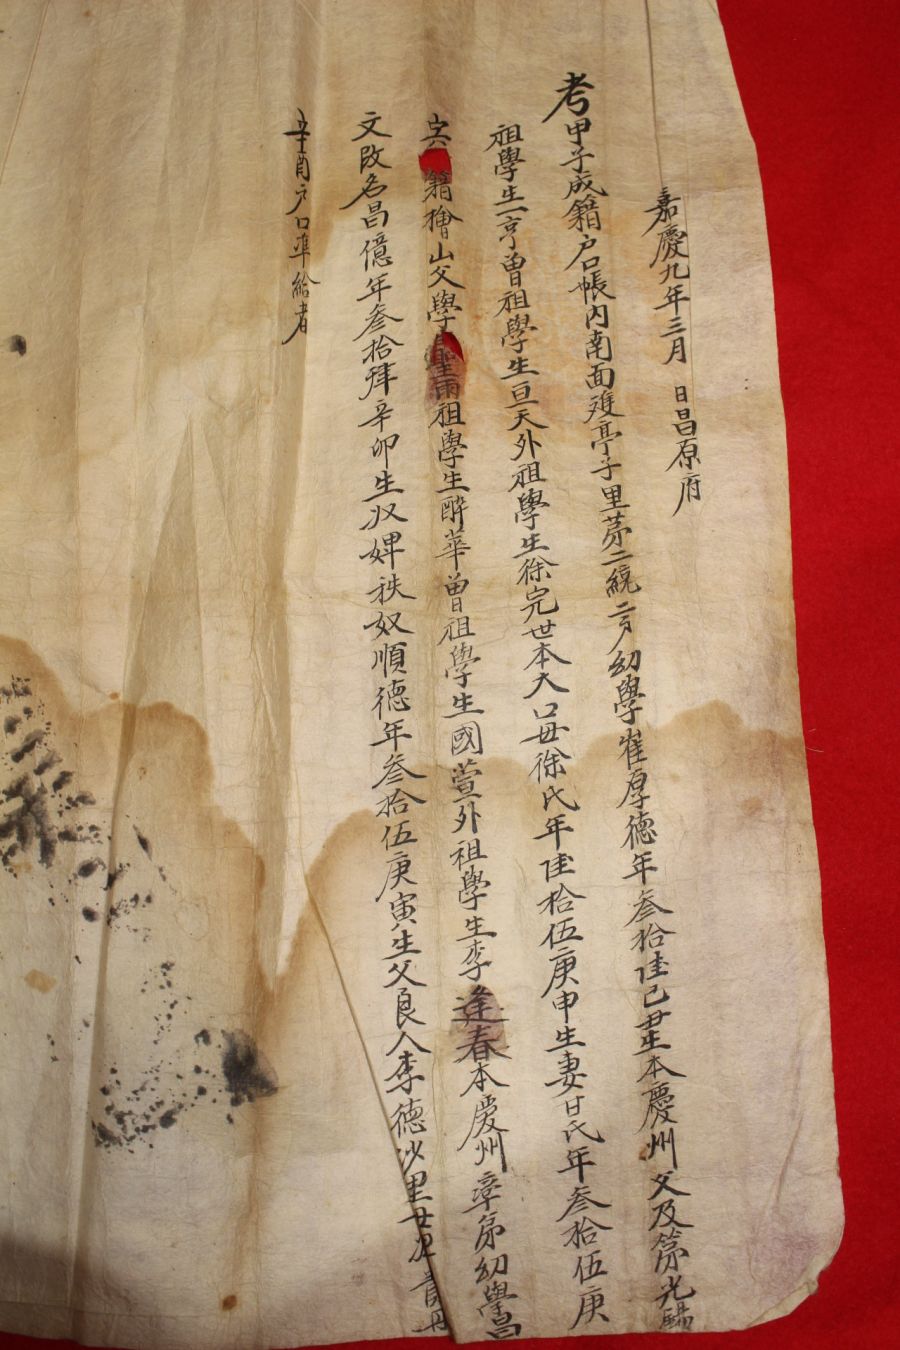 嘉慶九年三月 日昌原府
考甲子成籍戶口帳內南面亭子里第二統二戶幼學崔厚德年參拾陸己丑生本慶州父及第光
祖學生一亨曾祖學生亘天外祖學生徐完世本大丘母徐氏年陸拾伍庚申生妻甘氏年參拾伍庚
寅籍檜山父學生聖雨祖學生醉華曾祖學生國萱外祖學生李逢春本慶州率弟幼學昌
文改名昌億年參拾肆辛卯生奴婢秩奴順德年參拾伍庚寅生父良人李德沙里
辛酉戶口準給者